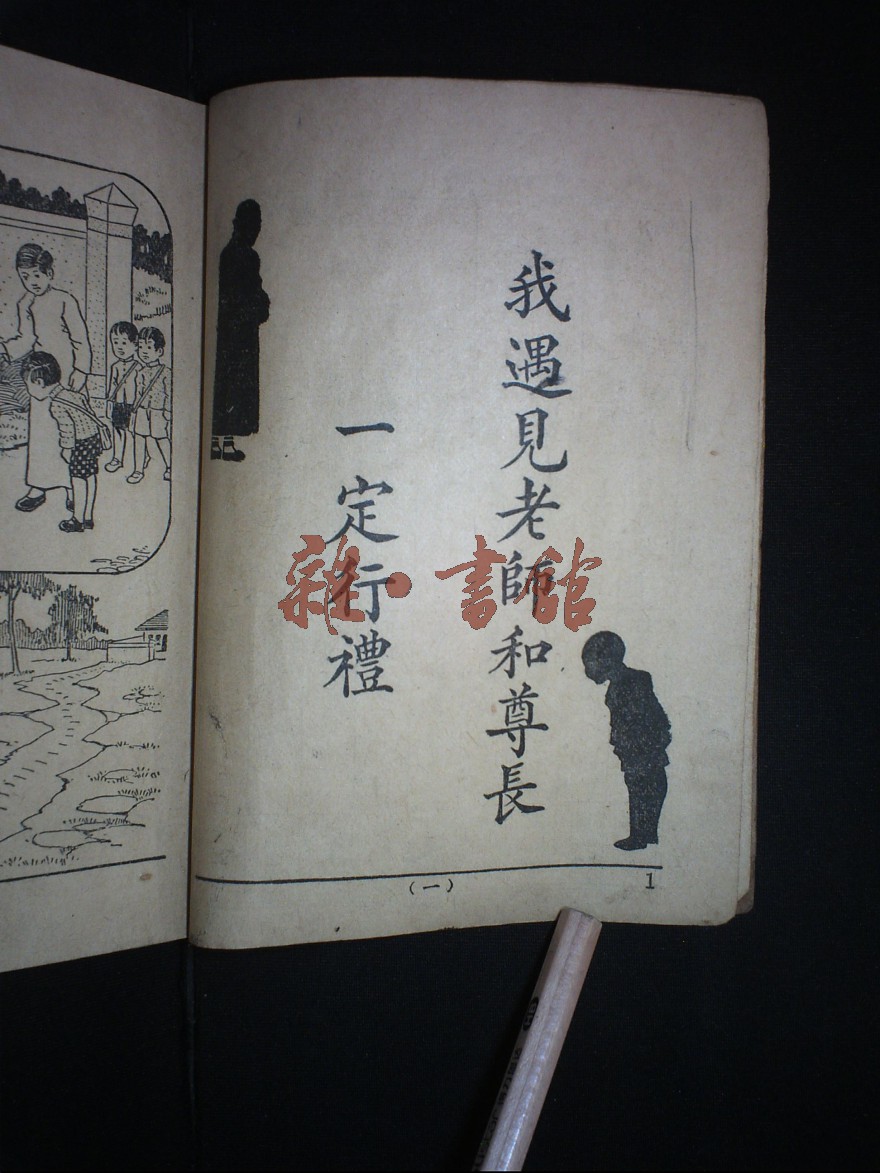 我遇見老師和尊長
一定行禮
（一）
1
雜·書館